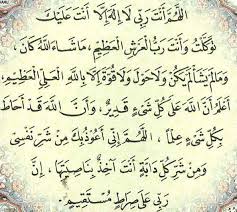 اللَّهُمَّ أَنْتَ رَبِّي لَا إِلَهَ إِلَّا أَنْتَ عَلَيْكَ
تَوَكَّلْتُ وَأَنْتَ رَبُّ الْعَرْشِ الْعَظِيمِ، مَا شَاءَ اللَّهُ كَانَ
وَمَا لَمْ يَشَأْ لَمْ يَكُنْ وَلَا حَوْلَ وَلَا قُوَّةَ إِلَّا بِاللَّهِ الْعَلِيِّ الْعَظِيمِ،
أَعْلَمُ أَنَّ اللَّهَ عَلَى كُلِّ شَيْءٍ قَدِيرٌ، وَأَنَّ اللَّهَ قَدْ أَحَاطَ
بِكُلِّ شَيْءٍ عِلْمًا، اللَّهُمَّ إِنِّي أَعُوذُ بِكَ مِنْ شَرِّ نَفْسِي
وَمِنْ شَرِّ كُلِّ دَابَّةٍ أَنْتَ آخِذٌ بِنَاصِيَتِهَا، إِنَّ
رَبِّي عَلَى صِرَاطٍ مُسْتَقِيمٍ.